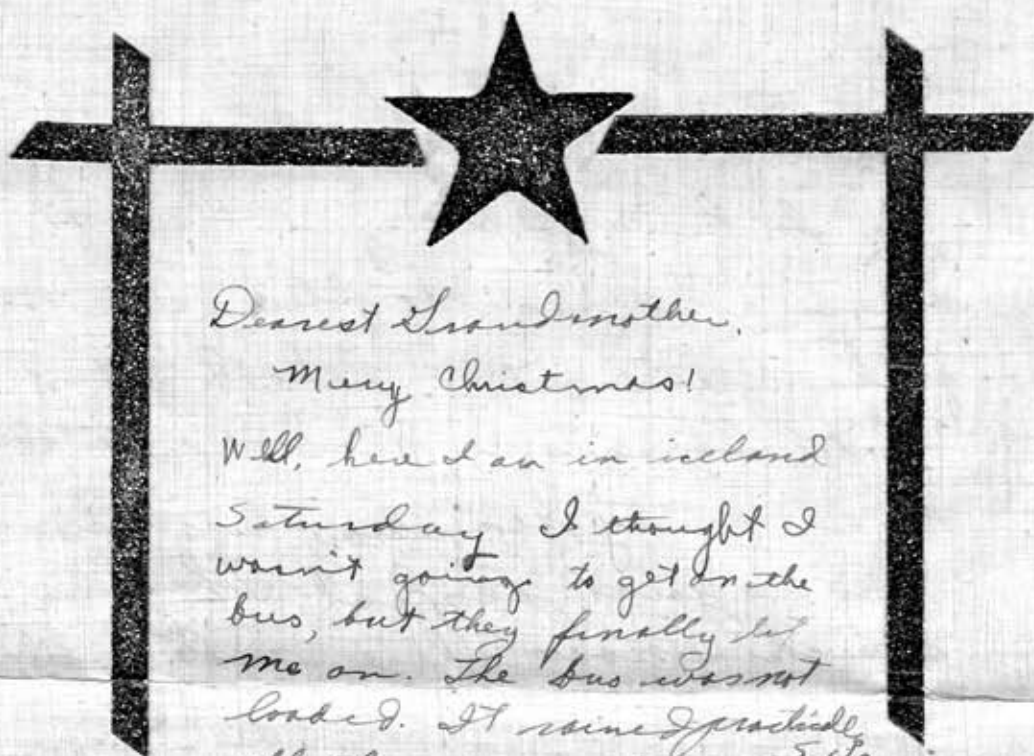 Dearest Grandmother,
Merry Christmas!
Well, here I am in iceland
Saturday I thought I
wasn't going to get on the
bus, but they finally let
me on. The bus was not
loaded. It rained practically